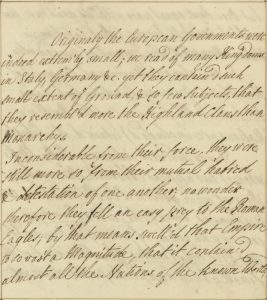 Originaly the European Governments were
indeed extremely small; we read of many Kingdoms
in Italy Germany &c. yet they contain'd such
small extent of Ground, & so few Subjects, that
they resembled more the Highland Clans than
Monarchys.
Inconsiderable from their force, they were
still more so from their mutual hatred
& detestation of one another, no wonder
therefore they fell an easy prey to the Roman
Eagles, by that means swell'd that Empire
to so vast a Magnitude, that it contain'd
almost all the Nations of the known World